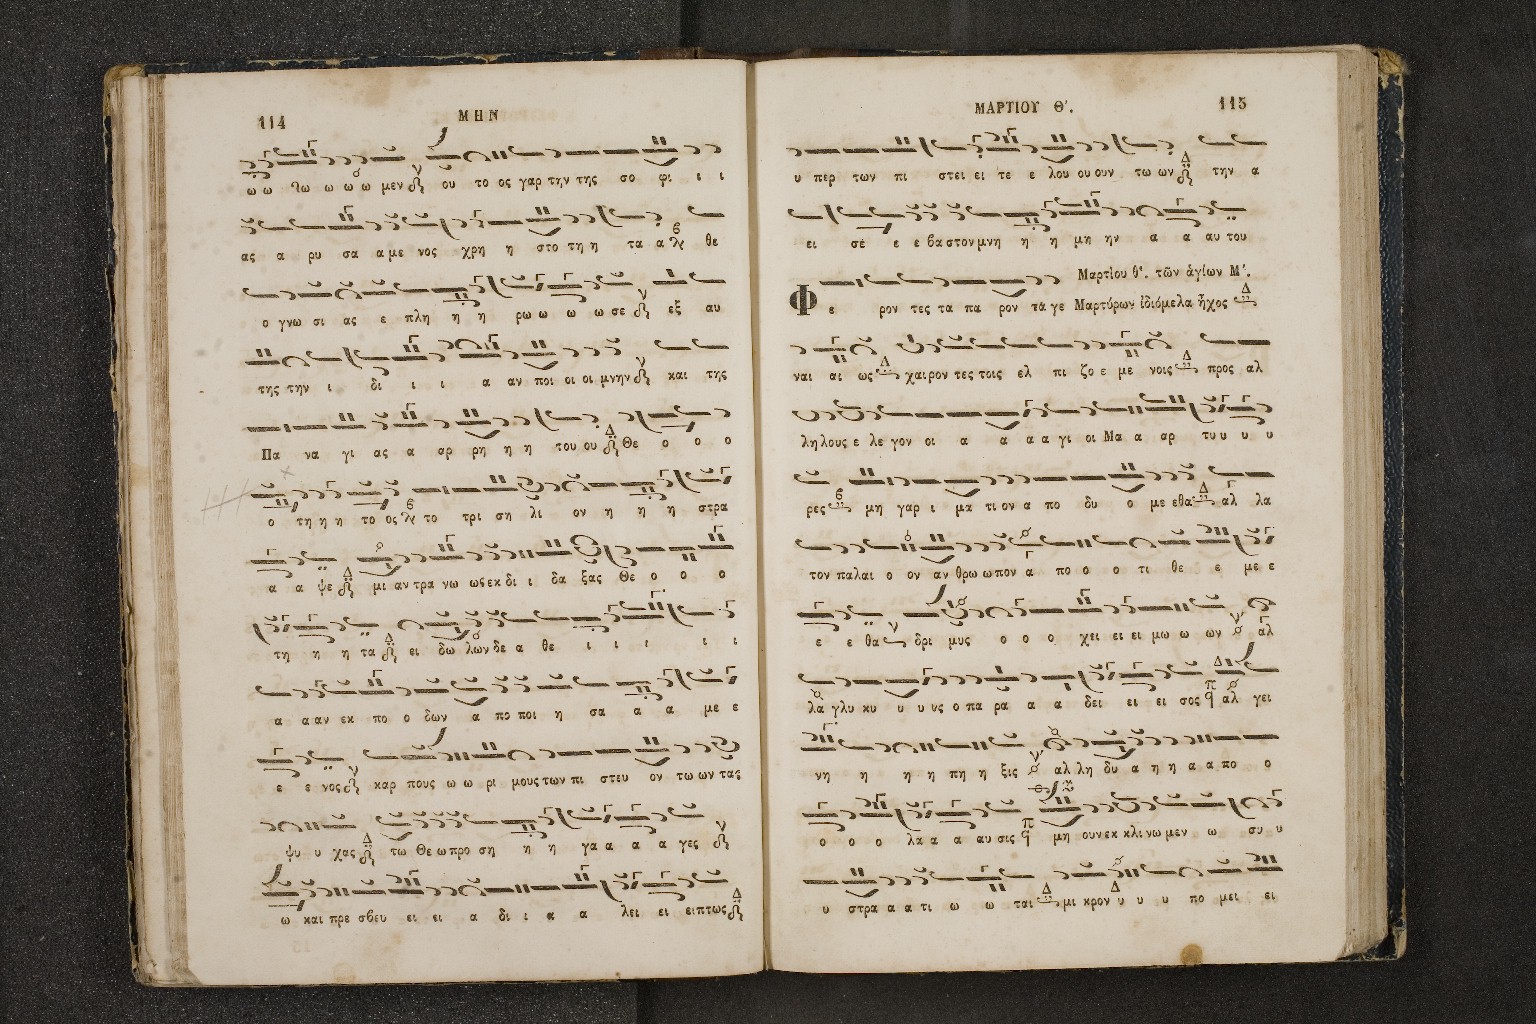 114 ΜΗΝ
ω ω λω ω ω ω μεν ου το ος γαρ την της σο φι ι ι
ας α ρυ σα α με νος χρη η στο τη η τα α θε
ο γνω σι ας ε πλη η η ρω ω ω ω σε εξ αυ
της την ι δι ι ι α αν ποι οι οι μνην και της
Πα να γι ας α αρ ρη η η του ου Θε ο ο ο
ο τη η η το ος το τρι ση λι ον η η η στρα
α α ψε μι αν τρα νω ως εκ δι ι δα ξας Θε ο ο ο
τη η η τα ει δω λων δε α θε ι ι ι ι ι
α α αν εκ πο ο δων α πο ποι η σα α α με ε
ε ε νος καρ πους ω ω ρι μους των πι στευ ον τω ων τας
ψυ υ χας τω Θε ω προ ση η η γα α α α γες
ω και πρε σβευ ει ει α δι ι α α λει ει ει πτως
ΜΑΡΤΙΟΥ Θ΄. 115
υ περ των πι στει ει τε ε λου ου ουν τω ων την α
ει σέ ε ε βα στον μνη η η μη ην α α αυ του
Μαρτίου θ΄. τῶν ἁγίων Μ΄.
Φ ε ρον τες τα πα ρον τα γε Μαρτύρων ἰδιόμελα ἦχος
ναι αι ως χαι ρον τες τοις ελ πι ζο ε με νοις προς αλ
λη λους ε λε γον οι α α α α γι οι Μα α αρ τυ υ υ υ
ρες μη γαρ ι μα τι ον α πο δυ ο με εθα αλ λα
τον παλαι ο ον αν θρω ω πον α πο ο ο τι θε ε με ε
ε ε θα δρι μυς ο ο ο χει ει ει μω ω ων αλ
λα γλυ κυ υ υ υς ο πα ρα α α δει ει ει σος αλ γει
νη η η η πη η ξις αλ λη δυ α η η α α πο ο
ο ο ο λα α α αυ σις μη ουν εκ κλι νω μεν ω συ υ
υ στρα α α τι ω ω ται μι κρον υ υ υ πο μει ει